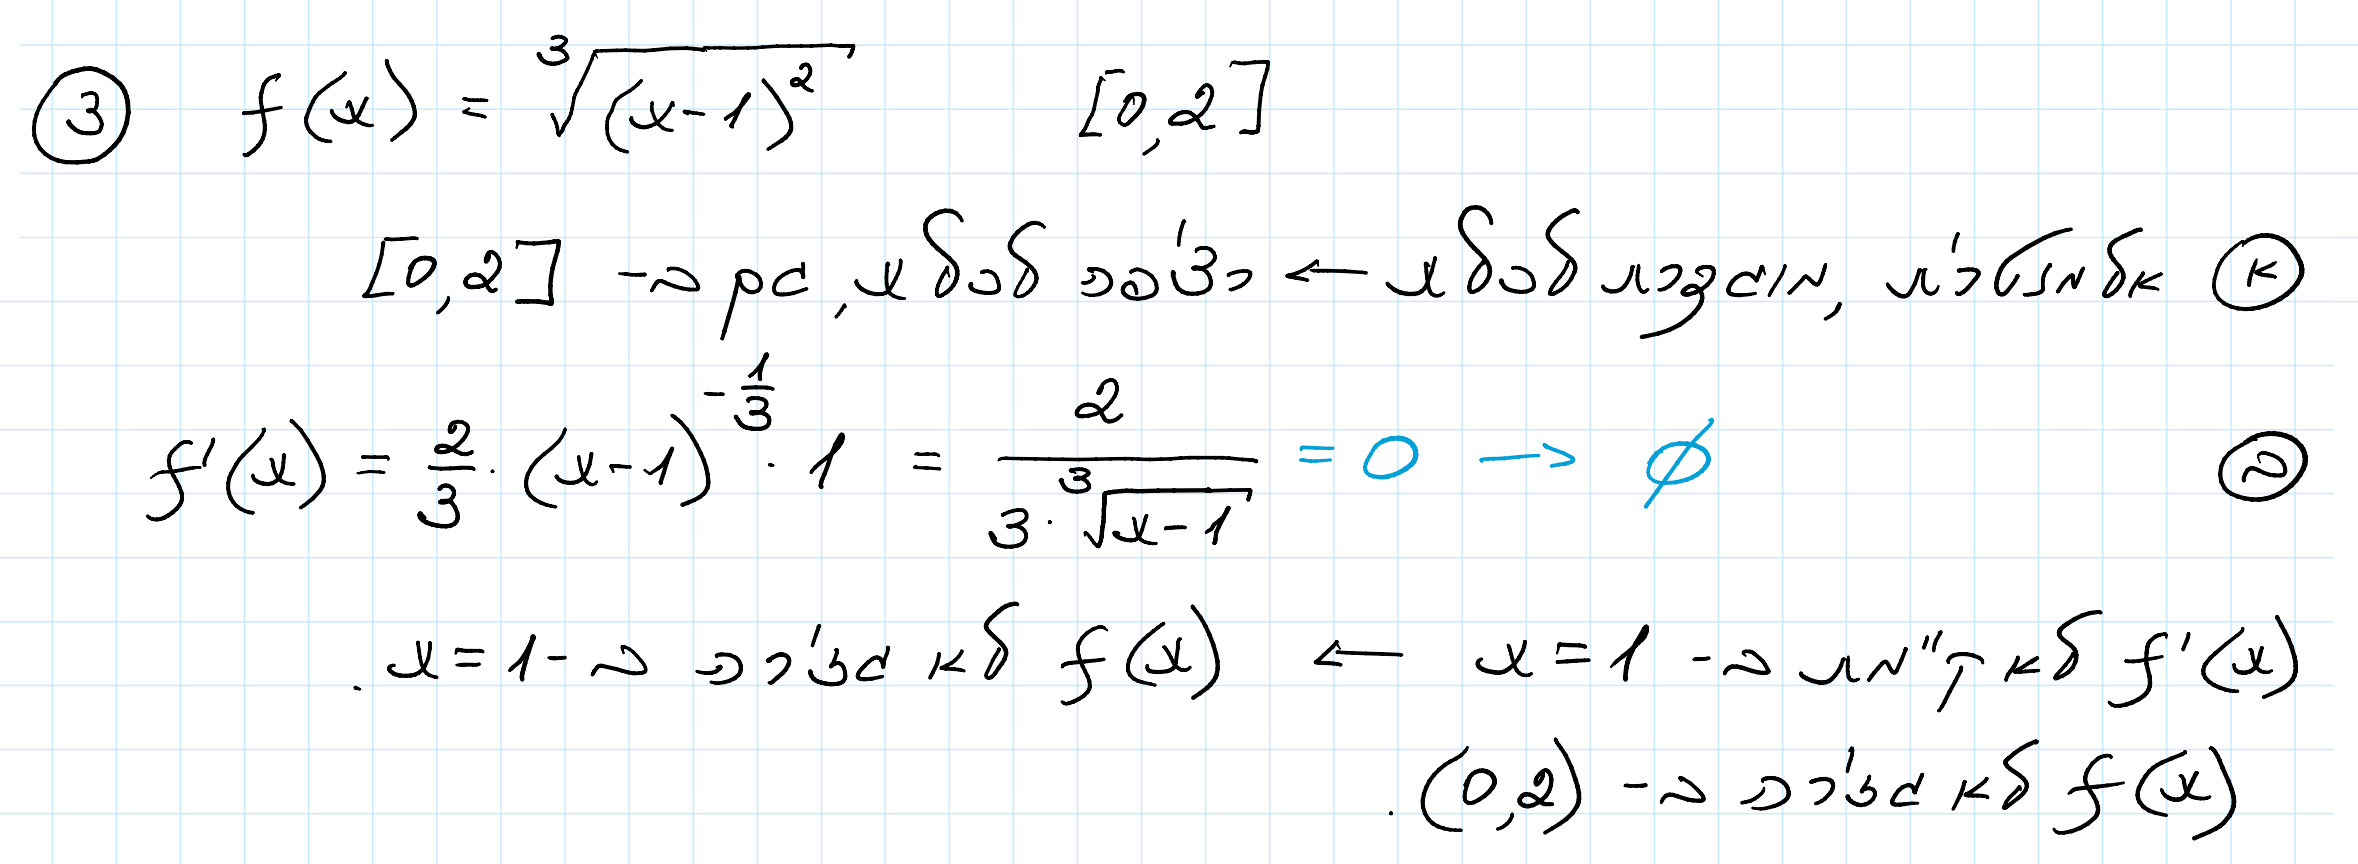 ③ f(x) = ∛(x-1)² [0,2]
א אלמנטרית, מוגדרת לכל x ← רציפה לכל x, גם ב- [0,2]
ב f'(x) = 2/3 · (x-1)^(-1/3) · 1 = 2/(3·∛(x-1)) = 0 → ∅
f'(x) לא קיימת ב- x=1 ← f(x) לא גזירה ב- x=1.
f(x) לא גזירה ב- (0,2).